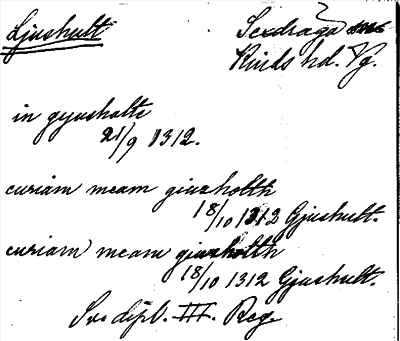 Ljushult
Sexdraga
Kinds hd. Vg.
in gyusholte
21/9 1312.
curiam meam giuzholth
18/10 1312 Gjushult.
curiam meam giuzholth
18/10 1312 Gjushult.
Sv. dipl. III. Reg.